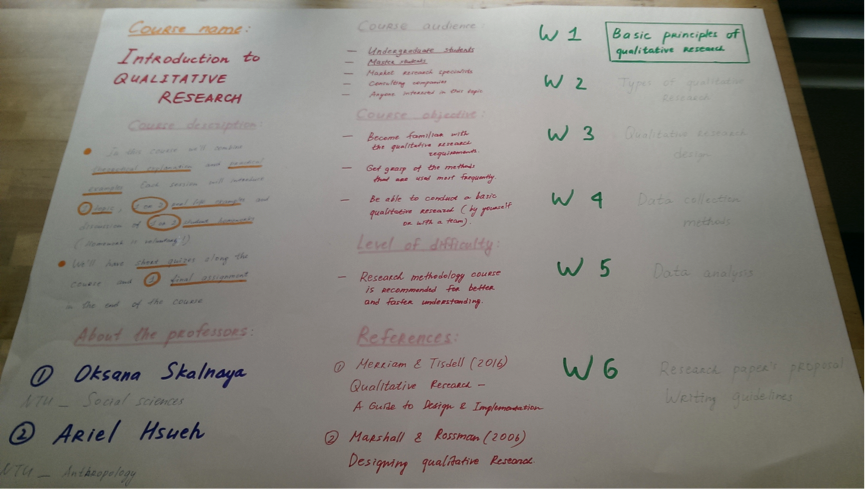 Course name:
Introduction to
QUALITATIVE
RESEARCH
Course description
In this course we'll combine
theoretical explanation and practical
examples. Each session will introduce
1 topic, 1 or 2 real life examples and
discussion of 1 or 2 student homeworks
(Homework is voluntary!)
We'll have short quizes along the
course and 1 final assignment
in the end of the course
About the professors:
1 Oksana Skalnaya
NTU _ Social sciences
2 Ariel Hsueh
NTU _ Anthropology
Course audience:
— Undergraduate students
— Master students
— Market research specialists
— Consulting companies
— Anyone interested in this topic
Course objective:
— Become familiar with
the qualitative research
requirements
— Get grasp of the methods
that are used most frequently
— Be able to conduct a basic
qualitative research (by yourself
or with a team).
Level of difficulty:
— Research methodology course
is recommended for better
and faster understanding.
References:
1 Merriam & Tisdell (2016)
Qualitative Research —
A Guide to Design & Implementation
2 Marshall & Rossman (2006)
Designing qualitative Research
W 1 Basic principles of
qualitative research
W 2 Types of qualitative
Research
W 3 Qualitative Research
design
W 4 Data collection
methods
W 5 Data analysis
W 6 Research paper's proposal
Writing guidelines